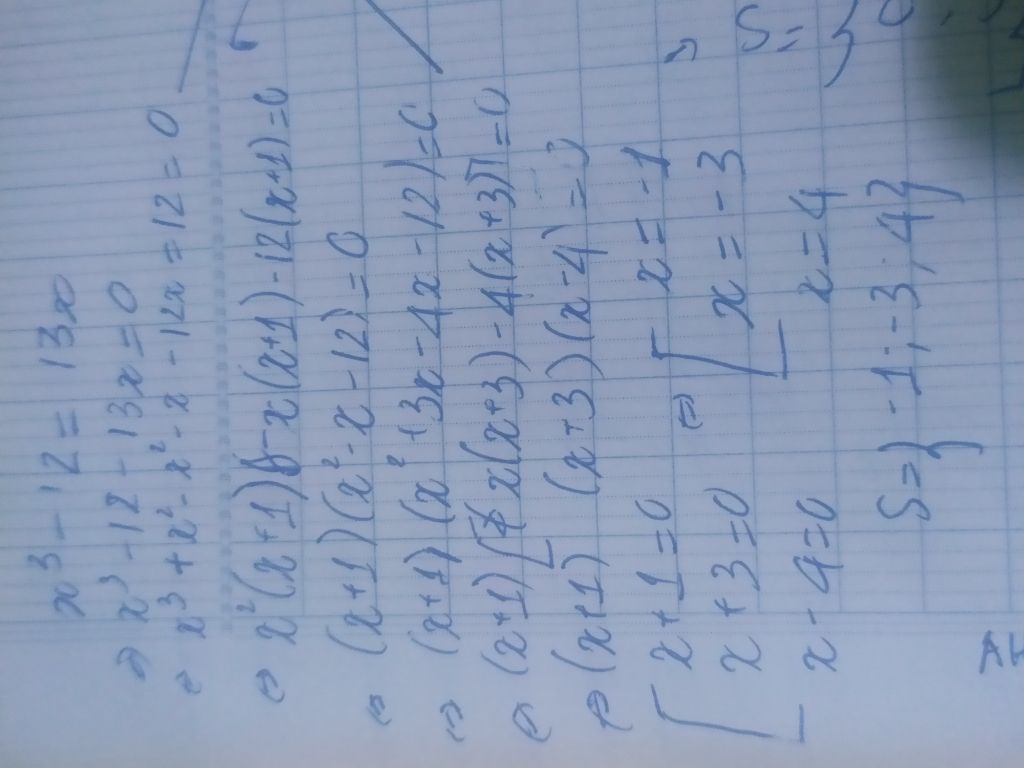 x³ - 12 = 13x
⇔ x³ - 12 - 13x = 0
⇔ x³ + x² - x² - x - 12x = 12 = 0
⇔ x²(x+1) - x(x+1) - 12(x+1) = 0
⇔ (x+1)(x² - x - 12) = 0
⇔ (x+1)(x² + 3x - 4x - 12) = 0
⇔ (x+1)[x(x+3) - 4(x+3)] = 0
⇔ (x+1)(x+3)(x-4) = 0
[ x + 1 = 0 ⇔ [ x = -1
x + 3 = 0 x = -3
x - 4 = 0 x = 4
S = { -1; -3; 4 }
S = { 0